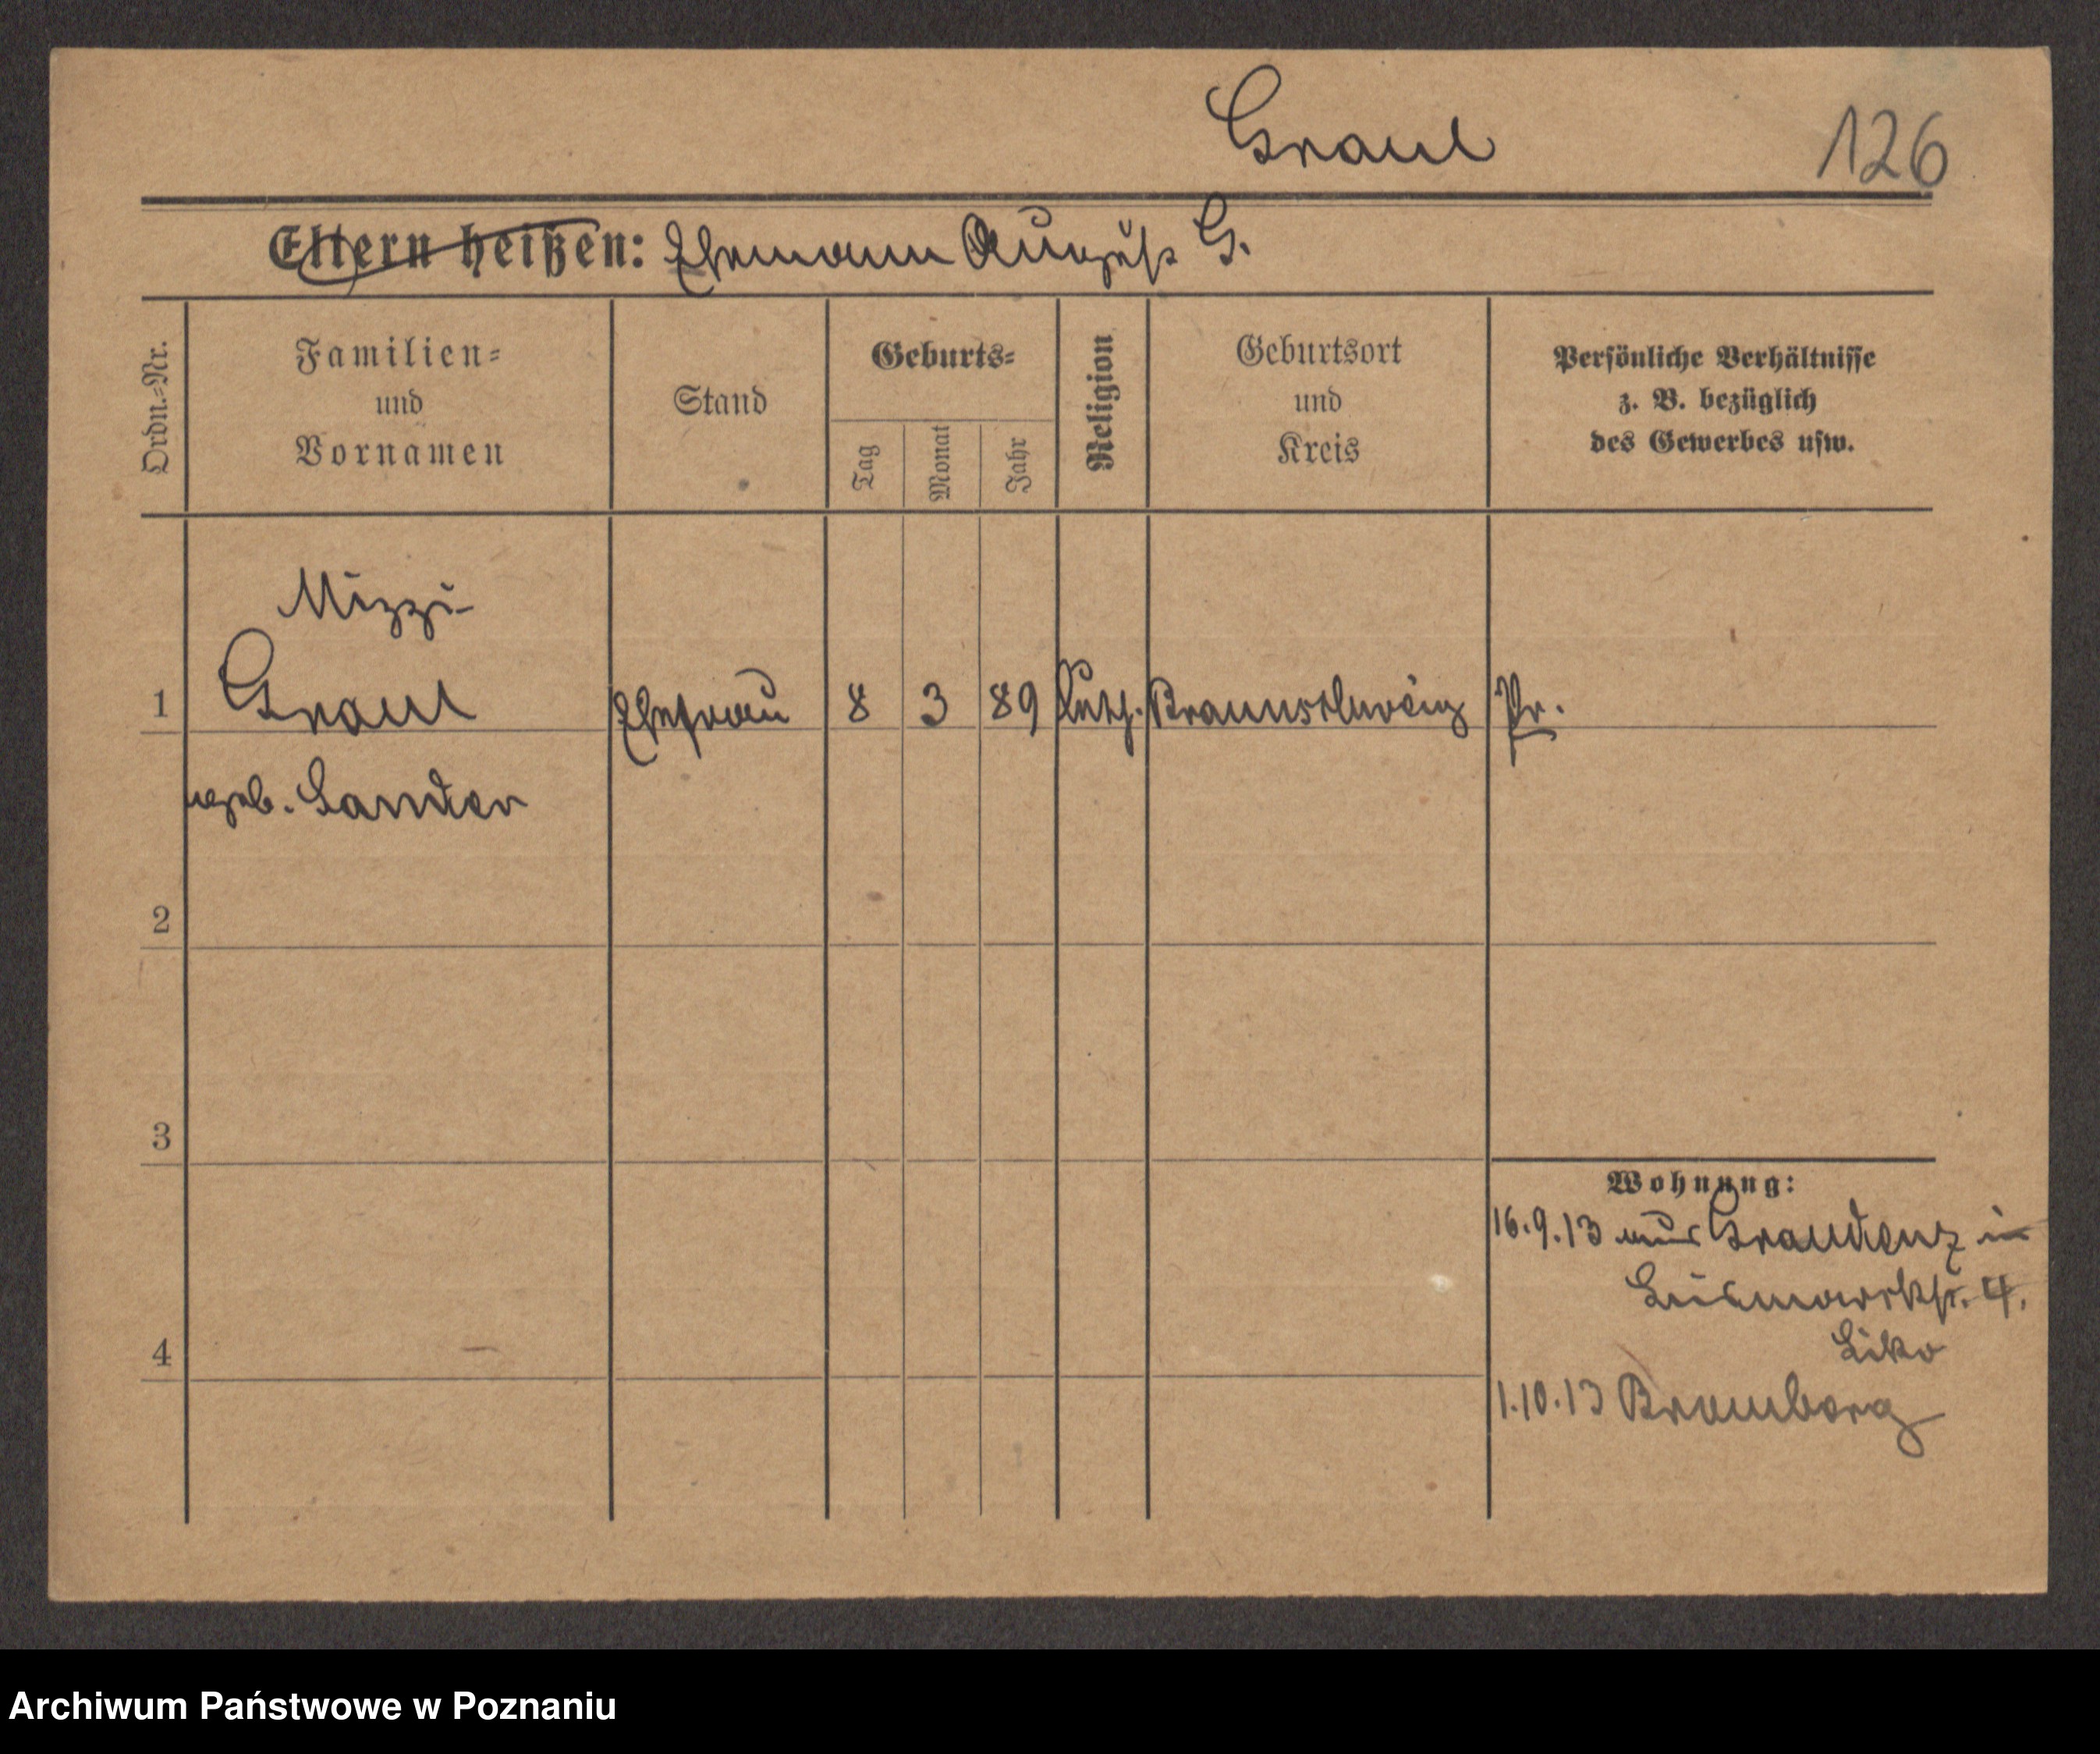 Graul
126
Eltern heißen: Ehemann August G.
Ordn.=Nr.
Familien=
und
Vornamen
Stand
Geburts=
Tag
Monat
Jahr
Religion
Geburtsort
und
Kreis
Persönliche Verhältnisse
z. B. bezüglich
des Gewerbes usw.
Mizzi
1 Graul Ehefrau 8 3 89 luth. Braunschweig Pr.
geb. Sander
2
3
4
Wohnung:
16.9.13 aus Graudenz in
Bismarckstr. 4.
1.10.13 Bromberg
Archiwum Państwowe w Poznaniu